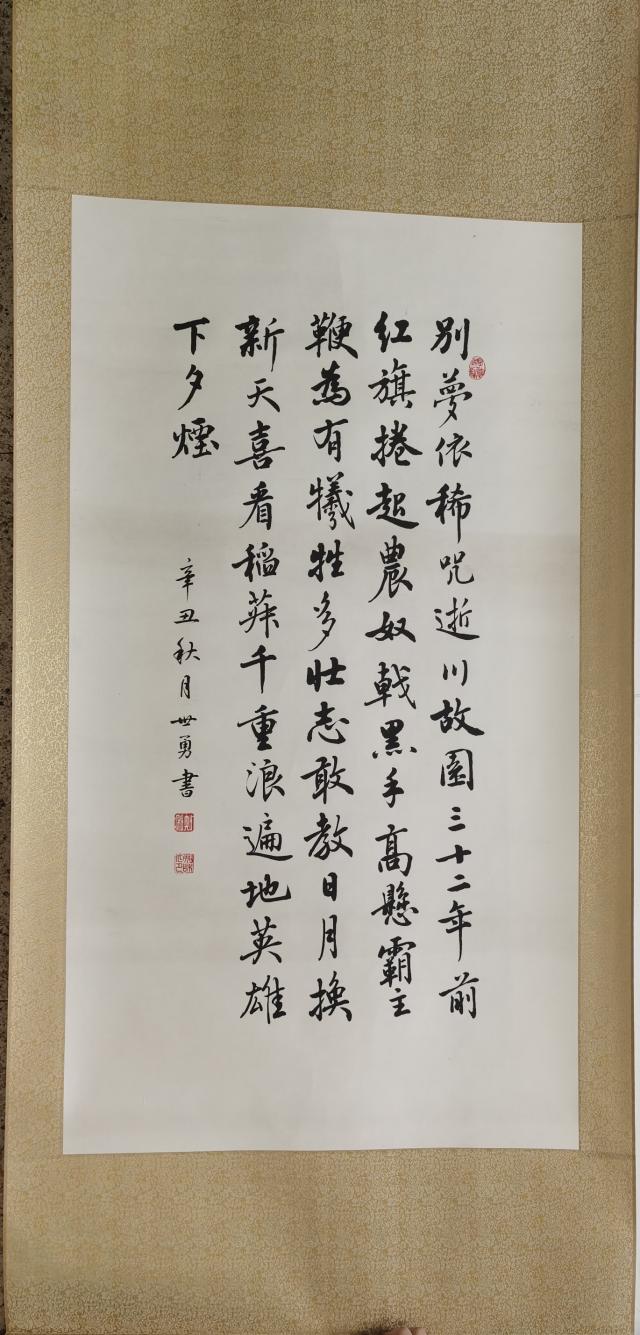 别夢依稀咒逝川故園三十二年前
红旗捲起農奴戟黑手高懸霸主
鞭為有犧牲多壮志敢教日月換
新天喜看稲菽千重浪遍地英雄
下夕煙
辛丑秋月世勇書